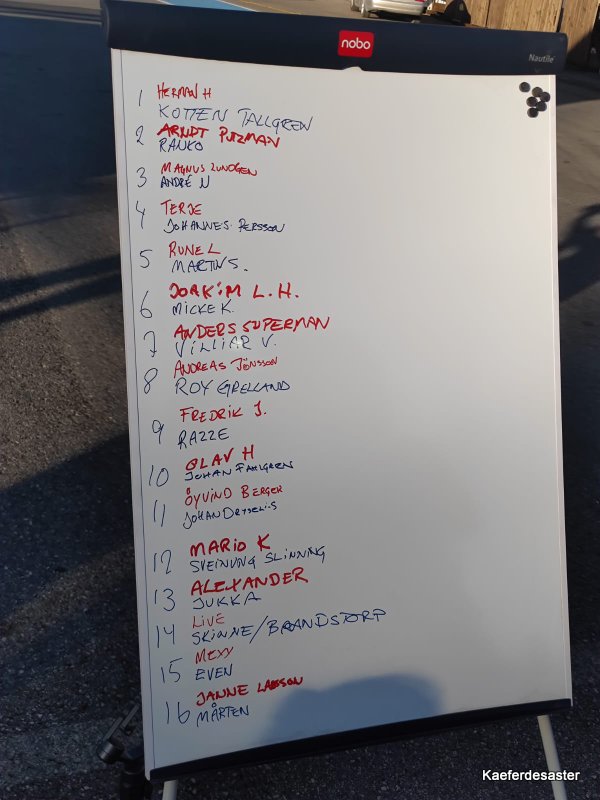 nobo
Nautile
1 HERMAN H
KOTTEN TALLGREN
2 ARNDT PUTZMAN
RANKO
3 MAGNUS LUNDGEN
ANDRÉ N
4 TERJE
JOHANNES PERSSON
5 RUNE L
MARTIN S.
6 JOAKIM L. H.
MICKE K.
7 ANDERS SUPERMAN
VILLIAR V.
8 ANDREAS JÖNSSON
ROY GRELLAND
9 FREDRIK J.
RAZZE
10 OLAV H
JOHAN FAHLGREN
11 ÖYVIND BERGER
JOHAN
12 MARIO K
SVEINUNG SLINNING
13 ALEXANDER
JUKKA
14 LIVE
SKINNE/BRANDSTORP
15 MEXY
EVEN
16 JANNE LARSSON
MÅRTEN
Kaeferdesaster